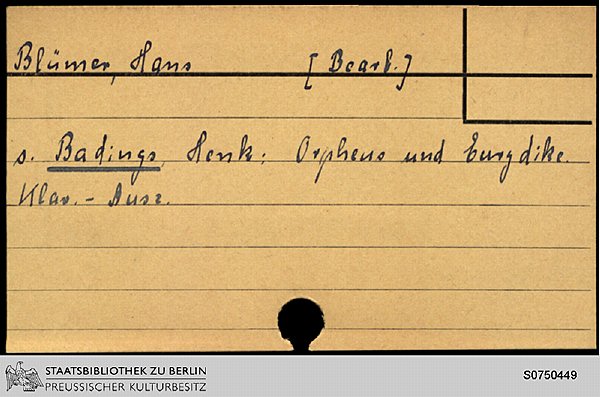 Blümer, Hans [Bearb.]
s. Badings, Henk: Orpheus und Eurydike.
Klav.-Ausz.
STAATSBIBLIOTHEK ZU BERLIN
PREUSSISCHER KULTURBESITZ
S0750449